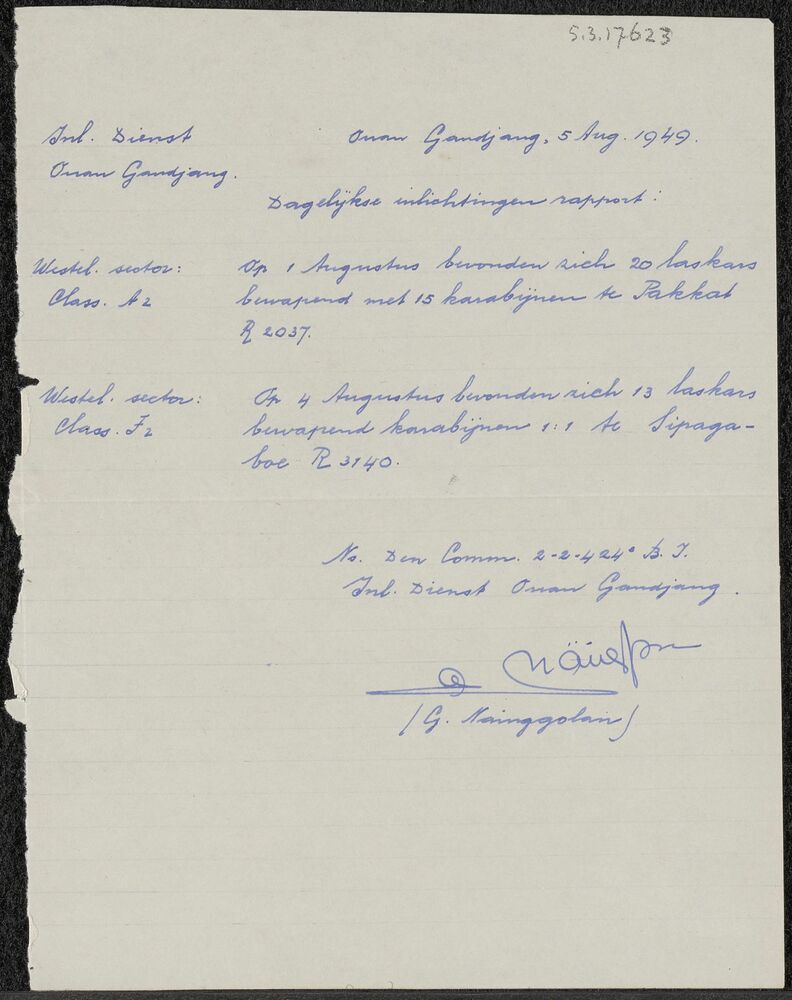 5.3.17623
Inl. Dienst
Onan Gandjang, 5 Aug. 1949.
Onan Gandjang.
Dagelijkse inlichtingen rapport:
Westel. sector: Op 1 Augustus bevonden zich 20 laskars
Class. A2 bewapend met 15 karabijnen te Pakkat
R 2037.
Westel. sector: Op 4 Augustus bevonden zich 13 laskars
Class. F2 bewapend karabijnen 1:1 te Sipaga-
boe R 3140.
Ns. Den Comm. 2-2-424° B.I.
Inl. Dienst Onan Gandjang.
(G. Nainggolan)